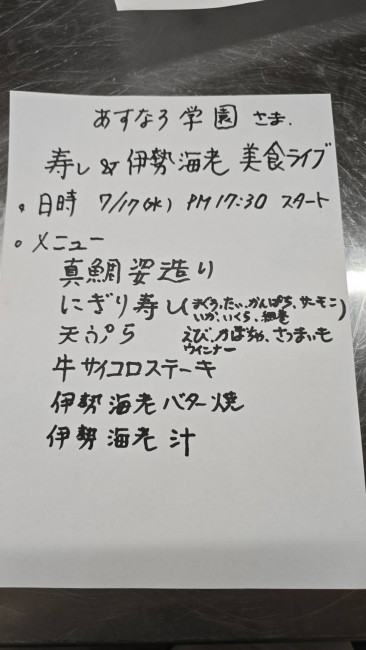 あすなろ学園さま.
寿し & 伊勢海老 美食ライブ
・日時 7/17(水) PM 17:30 スタート
・メニュー
真鯛姿造り
にぎり寿し(まぐろ、たい、かんぱち、サーモン
いか、いくら、細巻)
天ぷら えび、かぼちゃ、さつまいも
ウインナー
牛サイコロステーキ
伊勢海老バター焼
伊勢海老汁